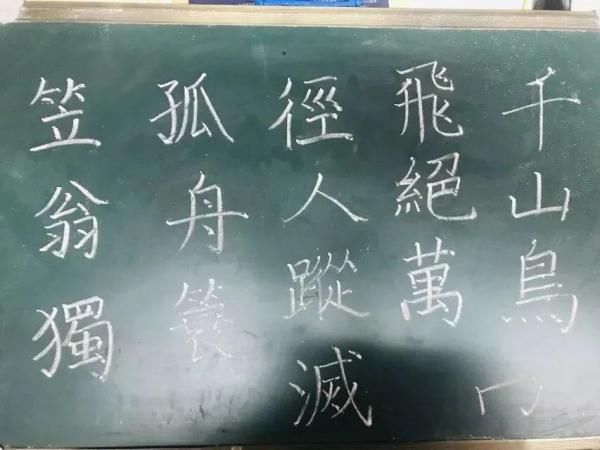 千山鳥
飛絕萬
徑人蹤滅
孤舟簑
笠翁獨